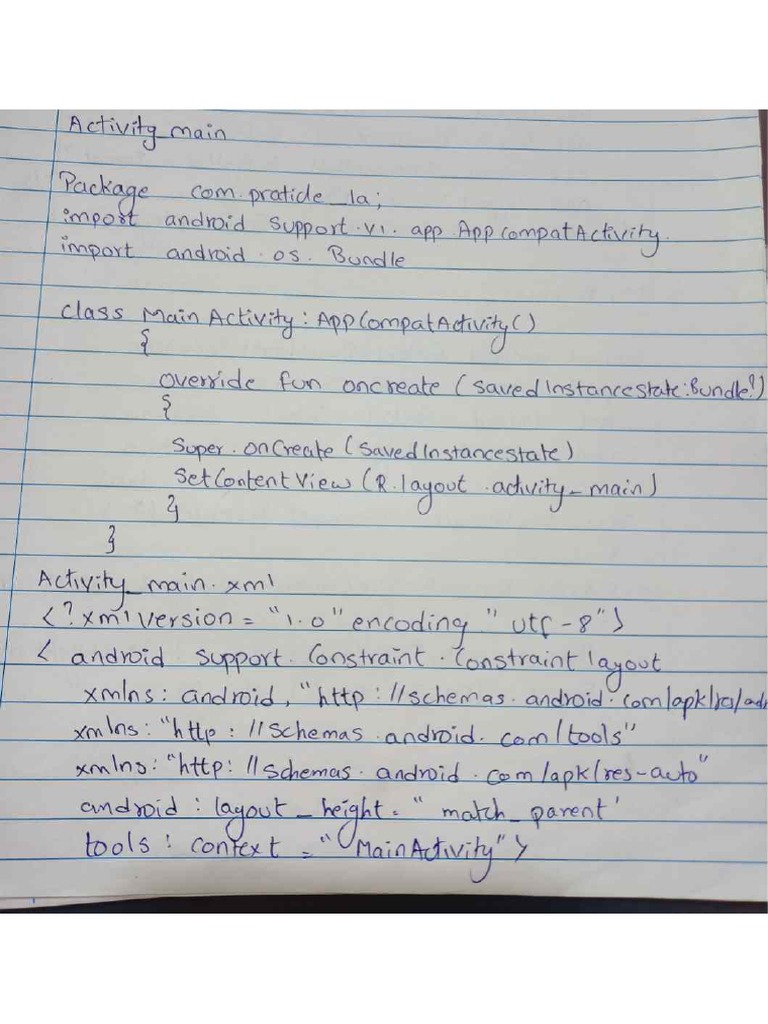 Activity_main
Package com.praticle_1a;
import android support.v1.app.AppcompatActivity.
import android.os.Bundle
class MainActivity:AppCompatActivity()
{
override fun oncreate (savedInstancestate:Bundle?)
{
Super.onCreate(savedInstancestate)
SetContentView(R.layout.activity_main)
}
}
Activity_main.xml
<?xml version="1.0" encoding "utf-8">
< android support.Constraint.Constraintlayout
xmlns: android, "http://schemas.android.com/apk/res/
xmlns:"http://schemas.android.com/tools"
xmlns:"http://schemas.android.com/apk/res-auto"
android:layout_height="match_parent'
tools:context="MainActivity">